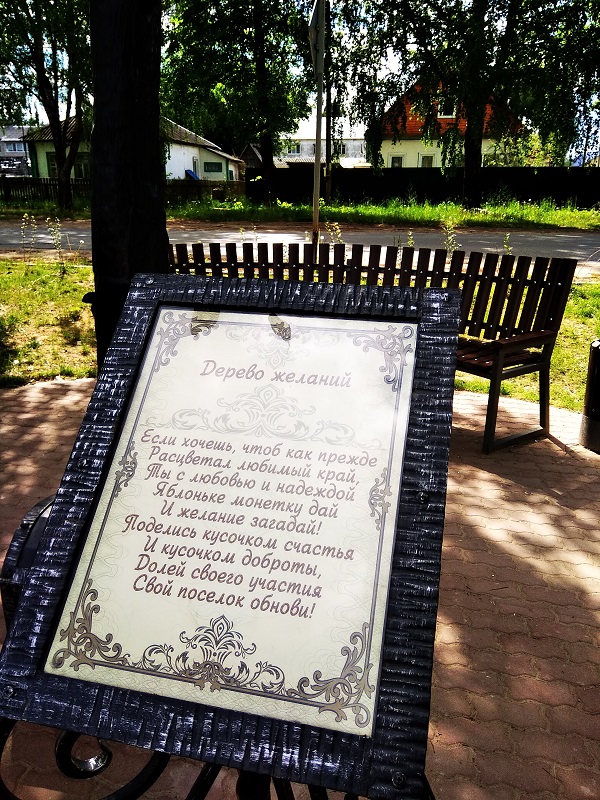 Дерево желаний
Если хочешь, чтоб как прежде
Расцветал любимый край,
Ты с любовью и надеждой
Яблоньке монетку дай
И желание загадай!
Поделись кусочком счастья
И кусочком доброты,
Долей своего участия
Свой поселок обнови!